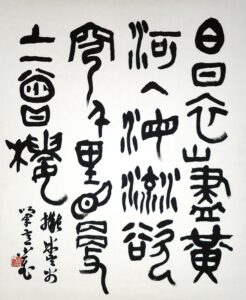 白日衣山盡黃
河入海流欲
窮千里目更
上一曾樓